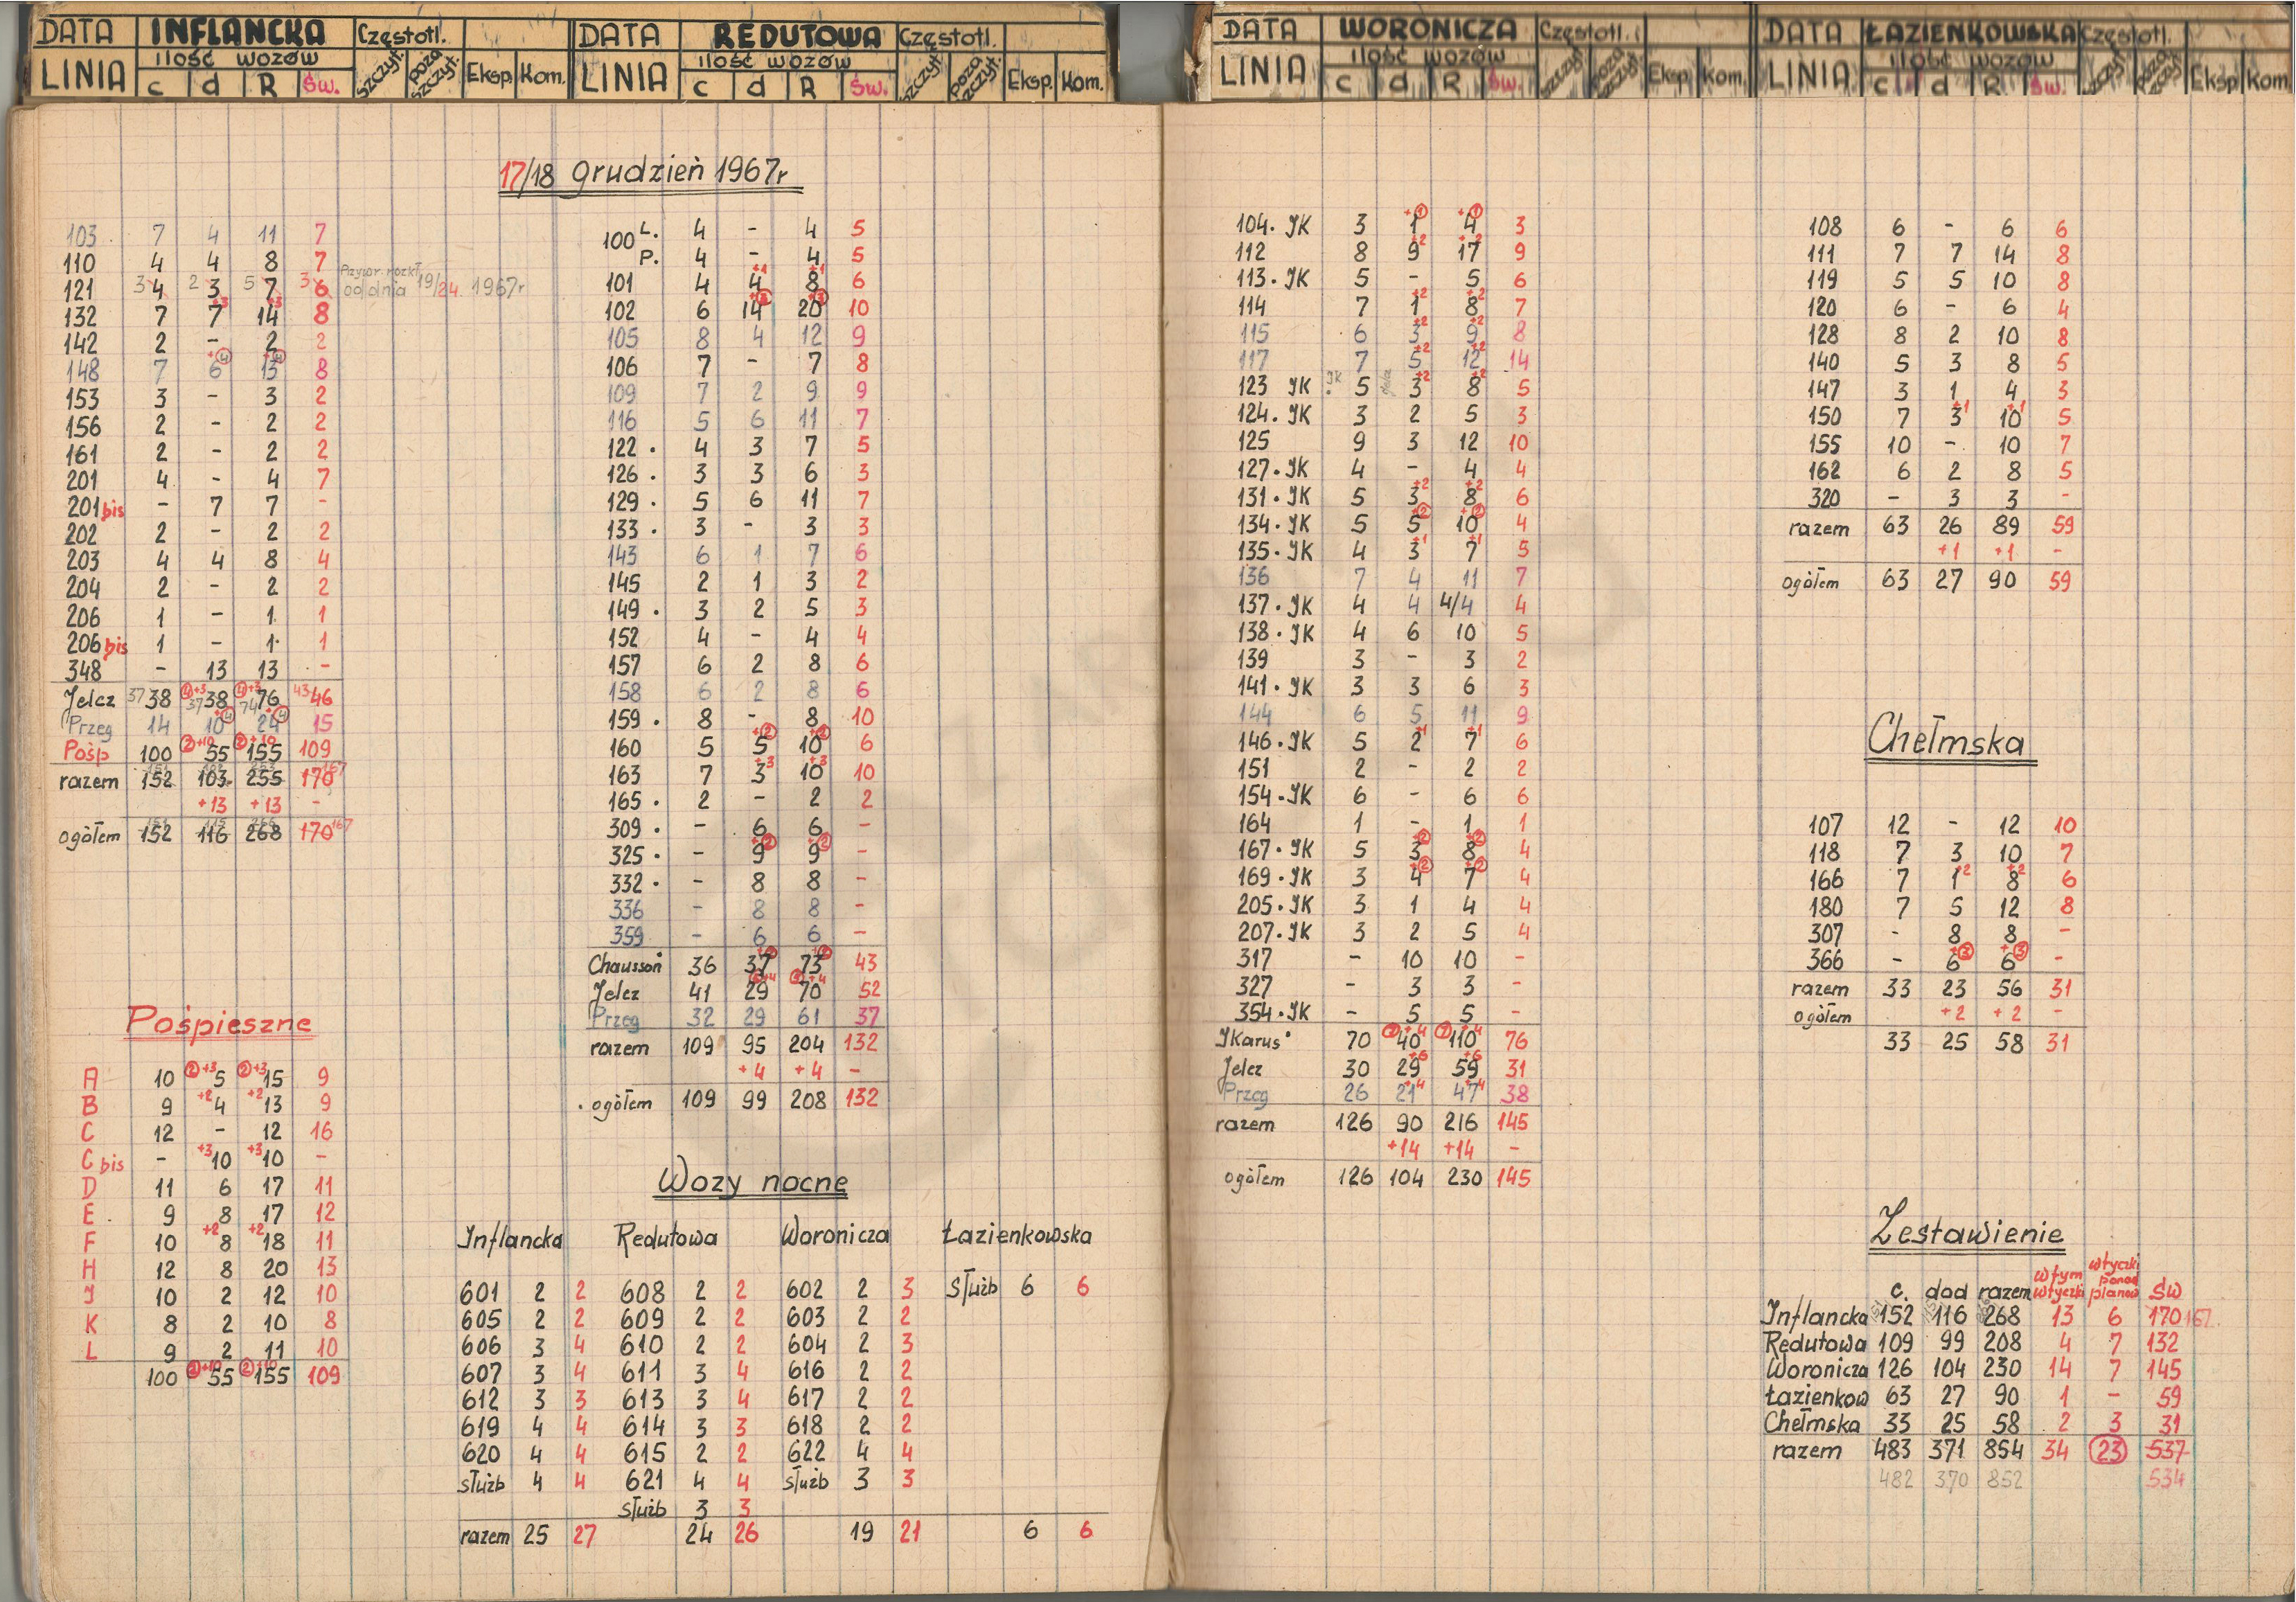 DATA INFLANCKA Częstotl.
LINIA ilość wozów
c d R Św. szczyt. poza szczyt. Eksp. Kom.
DATA REDUTOWA Częstotl.
LINIA ilość wozów
c d R Św. szczyt. poza szczyt. Eksp. Kom.
DATA WORONICZA Częstotl.
LINIA ilość wozów
c d R Św. szczyt. poza szczyt. Eksp. Kom.
DATA ŁAZIENKOWSKA Częstotl.
LINIA ilość wozów
c d R Św. szczyt. poza szczyt. Eksp Kom.
17/18 grudzień 1967r
103 7 4 11 7
110 4 4 8 7
121 3 4 2 3 5 7 3 6 Przywr. rozkł. od dnia 19/24 1967r
132 7 7 +3 14 +3 8
142 2 - 2 2
148 7 6 +4 13 +4 8
153 3 - 3 2
156 2 - 2 2
161 2 - 2 2
201 4 - 4 7
201 bis - 7 7 -
202 2 - 2 2
203 4 4 8 4
204 2 - 2 2
206 1 - 1. 1
206 bis 1 - 1. 1
348 - 13 13 -
Jelcz 37 38 4 +3 37 38 4 +3 74 76 43 46
Przeg 14 10 +4 24 +4 15
Pośp 100 2 +10 55 2 +10 155 109
razem 151 152 103 255 170 167
+13 +13 -
ogółem 151 152 115 116 266 268 170 167
Pośpieszne
A 10 2 +3 5 2 +3 15 9
B 9 +2 4 +2 13 9
C 12 - 12 16
C bis - +3 10 +3 10 -
D 11 6 17 11
E 9 8 17 12
F 10 +2 8 +2 18 11
H 12 8 20 13
J 10 2 12 10
K 8 2 10 8
L 9 2 11 10
100 2 +10 55 2 +10 155 109
100 L. 4 - 4 5
P. 4 - 4 5
101 4 4 +1 8 +1 6
102 6 14 20 10
105 8 4 12 9
106 7 - 7 8
109 7 2 9 9
116 5 6 11 7
122 . 4 3 7 5
126 . 3 3 6 3
129 . 5 6 11 7
133 . 3 - 3 3
143 6 1 7 6
145 2 1 3 2
149 . 3 2 5 3
152 4 - 4 4
157 6 2 8 6
158 6 2 8 6
159 . 8 - 8 10
160 5 5 +2 10 +2 6
163 7 3 +3 10 +3 10
165 . 2 - 2 2
309 . - 6 6 -
325 . - 9 +2 9 +2 -
332 . - 8 8 -
336 - 8 8 -
359 - 6 6 -
Chausson 36 37 73 43
Jelcz 41 29 +4 70 +4 52
Przeg 32 29 61 37
razem 109 95 204 132
+4 +4 -
. ogółem 109 99 208 132
Wozy nocne
Inflancka Redutowa Woronicza Łazienkowska
601 2 2 608 2 2 602 2 3 służb 6 6
605 2 2 609 2 2 603 2 2
606 3 4 610 2 2 604 2 3
607 3 4 611 3 4 616 2 2
612 3 3 613 3 4 617 2 2
619 4 4 614 3 3 618 2 2
620 4 4 615 2 2 622 4 4
służb 4 4 621 4 4 służb 3 3
służb 3 3
razem 25 27 24 26 19 21 6 6
104. JK 3 1 +1 4 +1 3
112 8 9 +2 17 +2 9
113. JK 5 - 5 6
114 7 1 +2 8 +2 7
115 6 3 +2 9 +2 8
117 7 5 +2 12 +2 14
123 JK JK . 5 3 +2 8 +2 5
124. JK 3 2 5 3
125 9 3 12 10
127. JK 4 - 4 4
131. JK 5 3 +2 8 +2 6
134. JK 5 5 +2 10 +2 4
135. JK 4 3 +1 7 +1 5
136 7 4 11 7
137. JK 4 4 4/4 4
138. JK 4 6 10 5
139 3 - 3 2
141. JK 3 3 6 3
144 6 5 11 9
146. JK 5 2 +1 7 +1 6
151 2 - 2 2
154. JK 6 - 6 6
164 1 - 1 1
167. JK 5 3 +2 8 +2 4
169. JK 3 4 +2 7 +2 4
205. JK 3 1 4 4
207. JK 3 2 5 4
317 - 10 10 -
327 - 3 3 -
354. JK - 5 5 -
JKarus . 70 7 +4 40 7 +4 110 76
Jelcz 30 29 +6 59 +6 31
Przeg 26 21 +4 47 +4 38
razem 126 90 216 145
+14 +14 -
ogółem 126 104 230 145
108 6 - 6 6
111 7 7 14 8
119 5 5 10 8
120 6 - 6 4
128 8 2 10 8
140 5 3 8 5
147 3 1 4 3
150 7 3 +1 10 +1 5
155 10 - 10 7
162 6 2 8 5
320 - 3 3 -
razem 63 26 89 59
+1 +1 -
ogółem 63 27 90 59
Chełmska
107 12 - 12 10
118 7 3 10 7
166 7 1 +2 8 +2 6
180 7 5 12 8
307 - 8 8 -
366 - 6 +3 6 +3 -
razem 33 23 56 31
ogółem +2 +2 -
33 25 58 31
Zestawienie
c. dod razem w tym wtyczki wtyczki ponad planow św
Inflancka 152 116 268 13 6 170 167
Redutowa 109 99 208 4 7 132
Woronicza 126 104 230 14 7 145
Łazienkow 63 27 90 1 - 59
Chełmska 33 25 58 2 3 31
razem 483 371 854 34 23 537
482 370 852 534